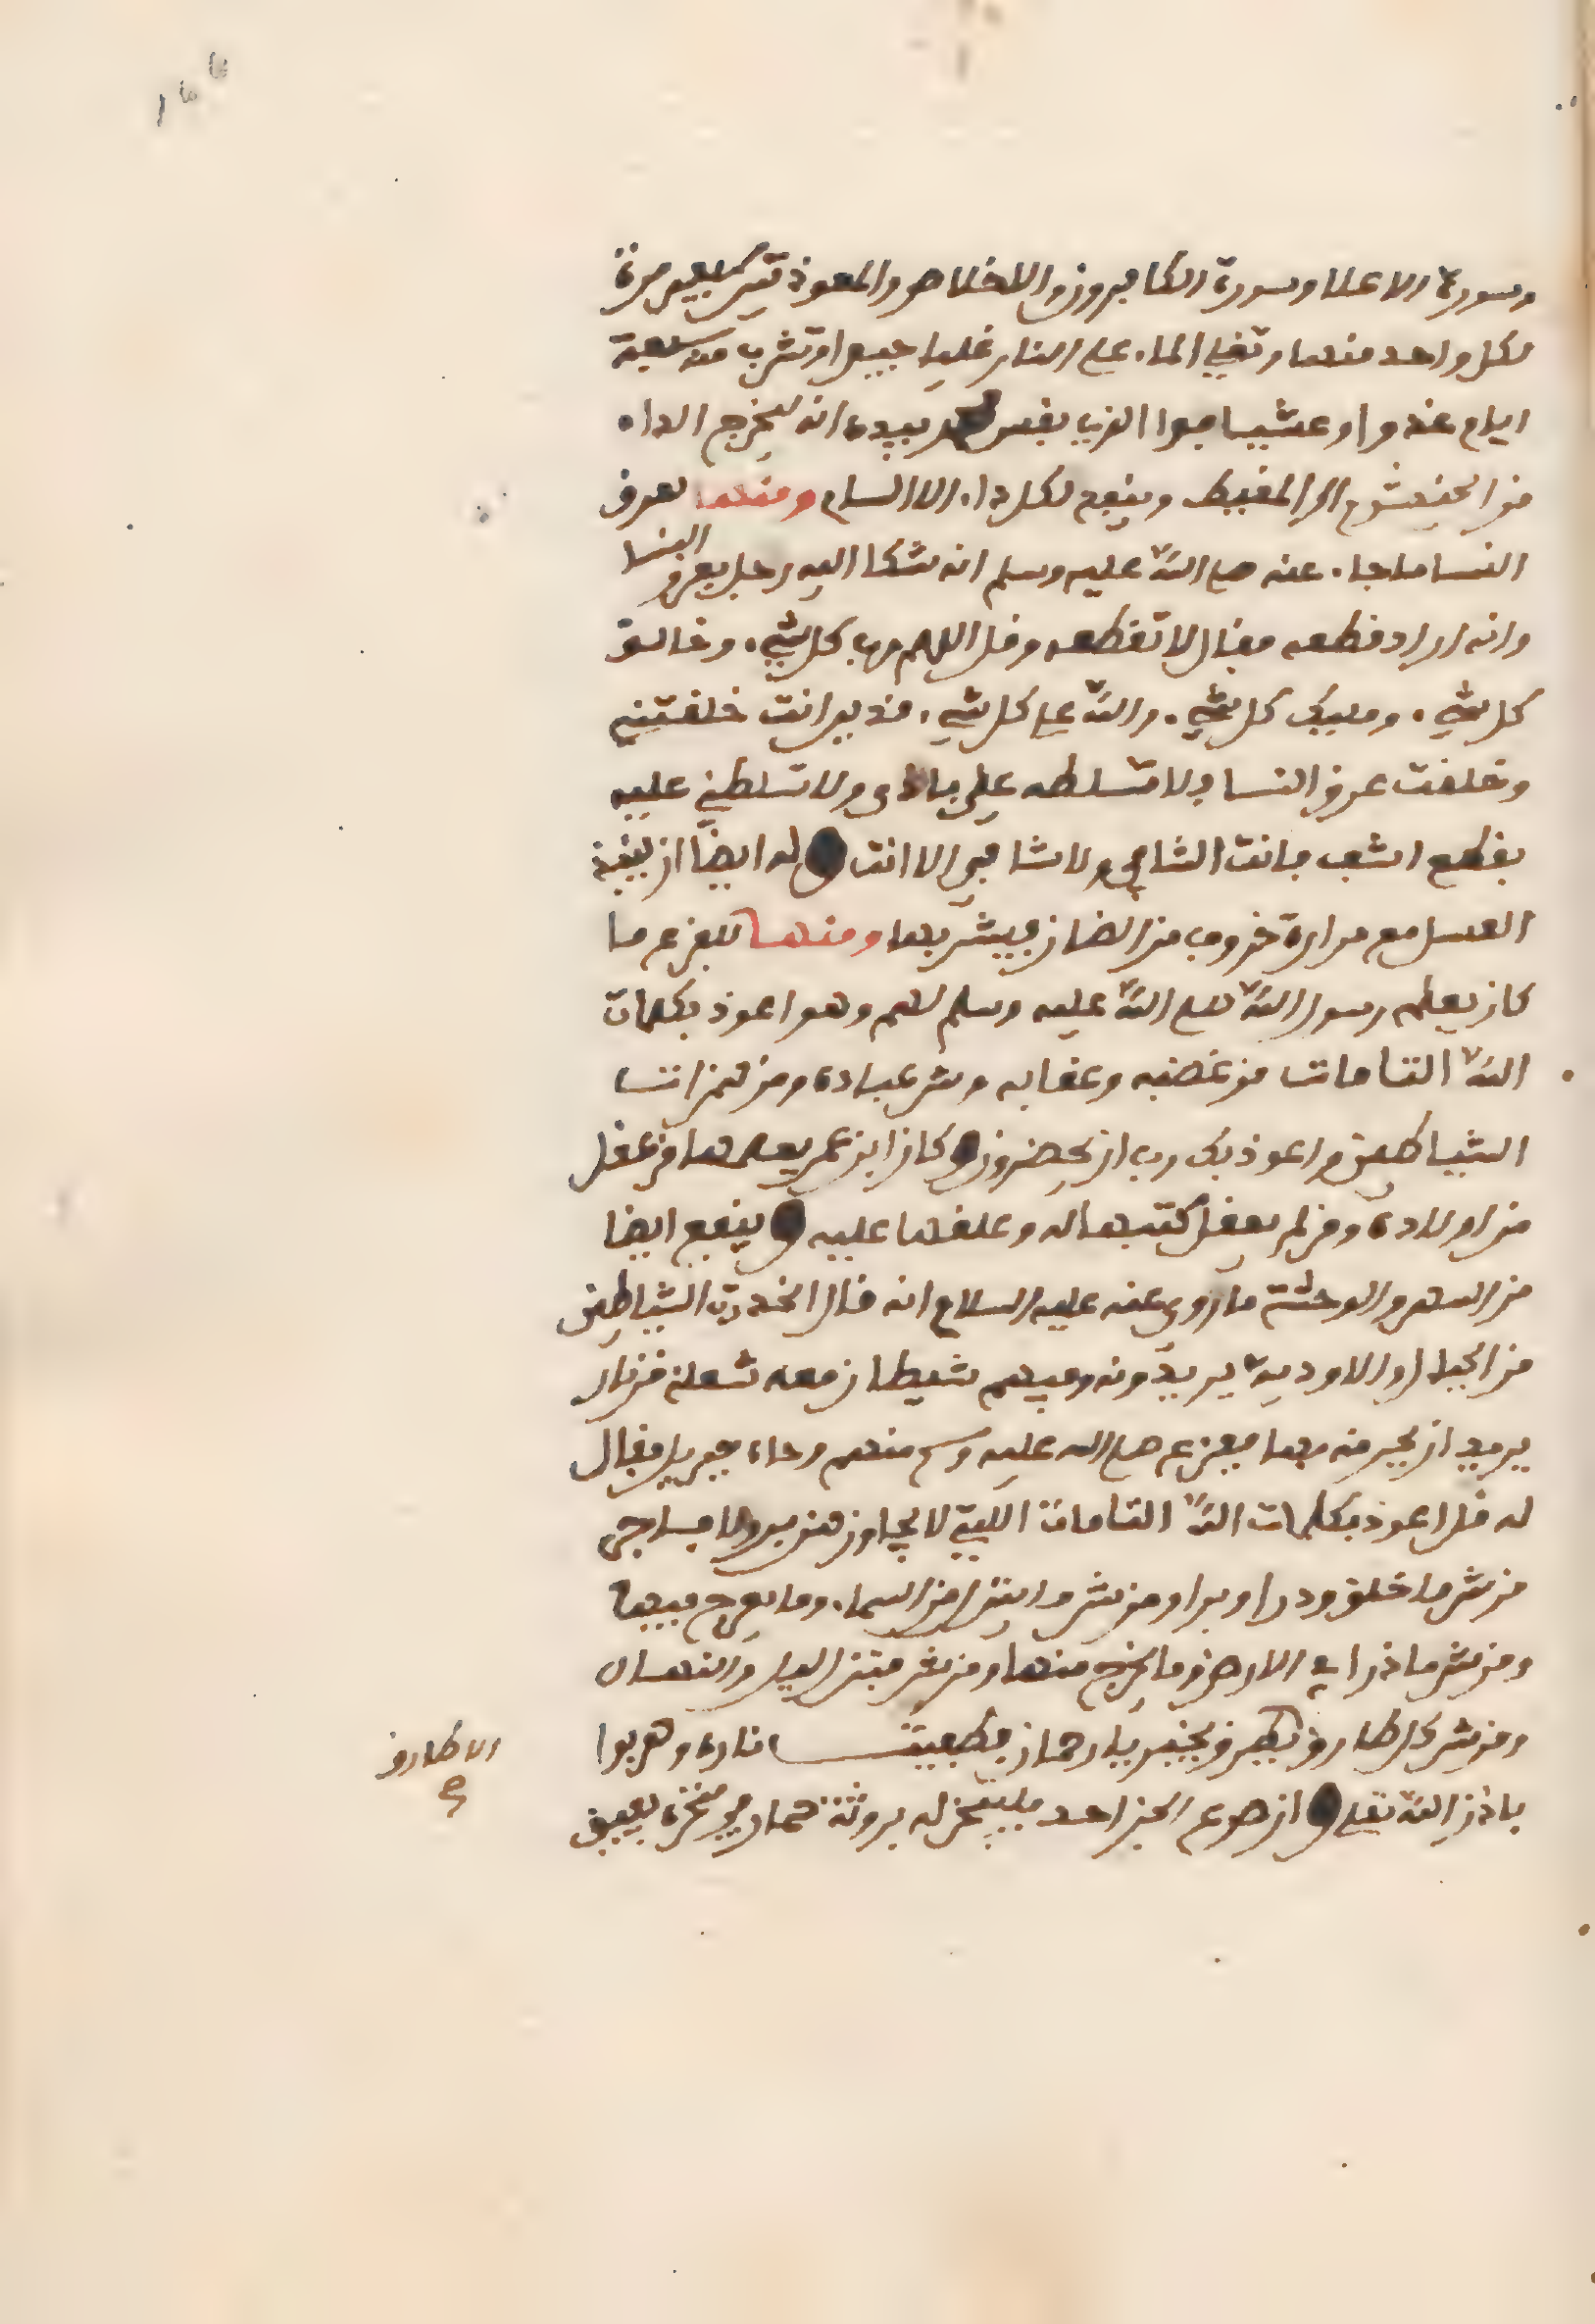 وسورة الاعلا وسورة الكافرون والاخلاص والمعوذتين سبعين مرة
لكل واحد منها وتغلي الماء على النار غليا جيدا وتشرب منه سبعة
ايام غدوا وعشيا فوا الذي نفس محمد بيده انه ليخرج الداء
من الخيشوم الى المغبط وينفع لكل داء الا السام ومنها لعرق
النسا ما جاء عنه صلى الله عليه وسلم انه شكا اليه رجل بعرق النسا
وانه اراد قطعه فقال لا تقطعه وقل اللهم رب كل شيء وخالق
كل شيء ومليك كل شيء والله على كل شيء قدير انت خلقتني
وخلقت عرق النسا فلا تسلطه علي باذى ولا تسلطني عليه
بقطع اشف فانت الشافي ولا شافي الا انت وله ايضا ان
العسل مع مرارة خروف من الضان فيشربها ومنها للفزع ما
كان يعلم رسول الله صلى الله عليه وسلم لهم وهو اعوذ بكلمات
الله التامات من غضبه وعقابه وشر عباده ومن همزات
الشياطين واعوذ بك رب ان يحضرون وكان ابن عمر يعلمها من عقل
من اولاده ومن لم يعقل كتبها له وعلقها عليه وينفع ايضا
من السهر والوحشة ما روي عنه عليه السلام انه قال انحدرت الشياطين
من الجبال والاودية يريدونه وفيهم شيطان معه شعلة من نار
يريد ان يحرقه بها ففزع صلى الله عليه وسلم منهم وجاء جبريل فقال
له قل اعوذ بكلمات الله التامات اللتي لا يجاوزهن بر ولا فاجر
من شر ما خلق وذرا وبرا ومن شر ما ينزل من السماء وما يعرج فيها
ومن شر ما ذرا في الارض وما يخرج منها ومن شر فتن الليل والنهار
ومن شر كل طارق يطرق بخير يا رحمان فطفيت ناره وهربوا
الا طارق
صح
باذن الله تعلى وان صرع الجن احد فليبخر له بروثة حمار في منخره يفيق